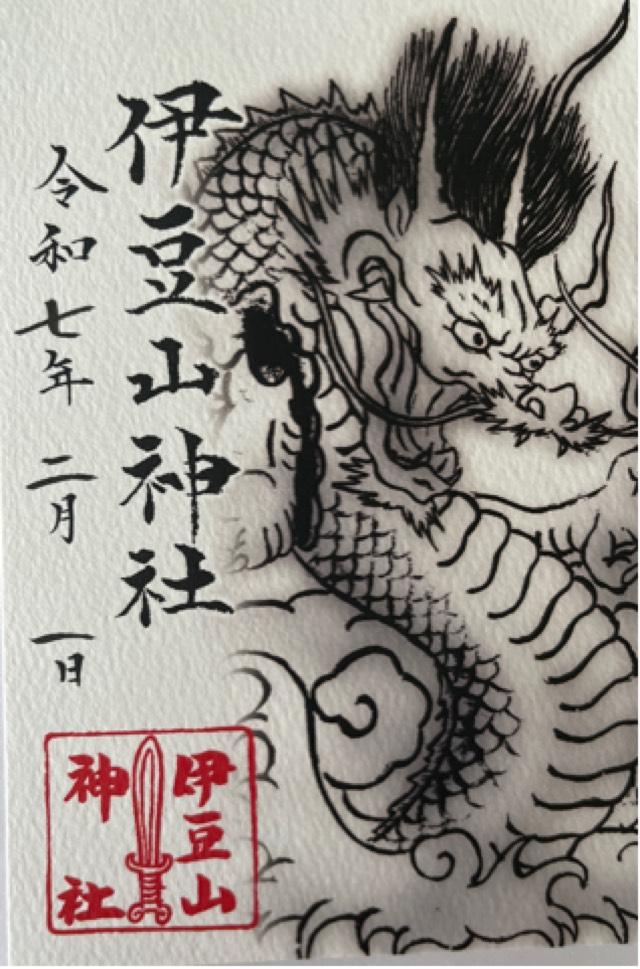 伊豆山神社
令和七年 二月 一日
伊豆山
神社